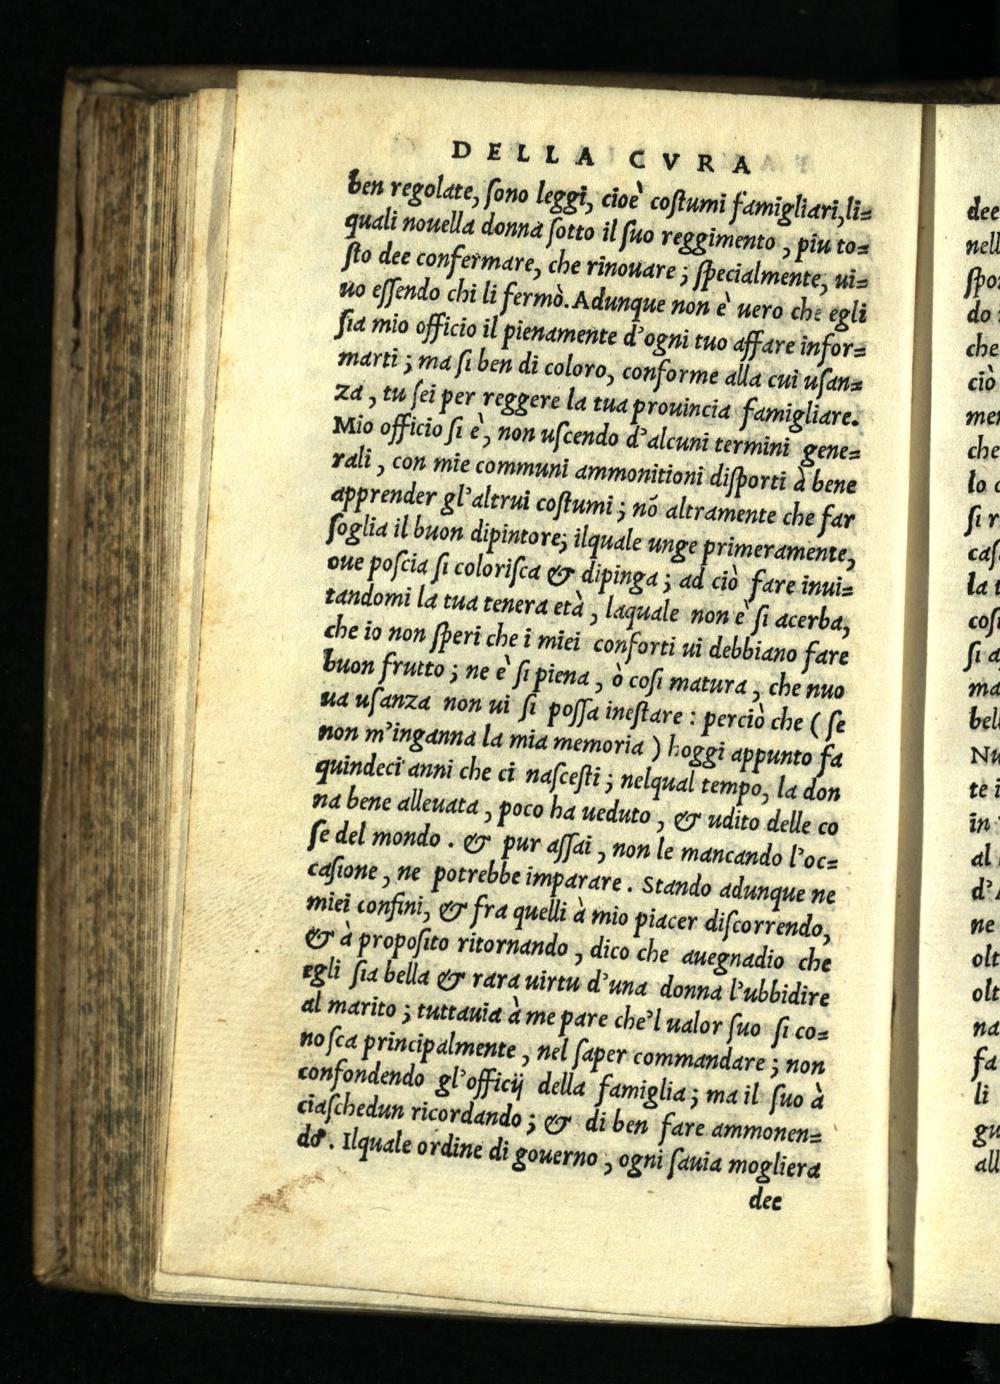 DELLA CVRA
ben regolate, ſono leggi, cioè coſtumi famigliari,li=
quali nouella donna ſotto il ſuo reggimento , piu to=
ſto dee confermare, che rinouare ; ſpecialmente, ui=
uo eſſendo chi li fermò. Adunque non è uero che egli
ſia mio officio il pienamente d'ogni tuo affare infor=
marti ; ma ſi ben di coloro, conforme alla cui uſan=
za , tu ſei per reggere la tua prouincia famigliare.
Mio officio ſi è, non uſcendo d'alcuni termini gene=
rali , con mie communi ammonitioni diſporti à bene
apprender gl'altrui coſtumi ; nõ altramente che far
ſoglia il buon dipintore; ilquale unge primeramente,
oue poſcia ſi coloriſca & dipinga ; ad ciò fare inui=
tandomi la tua tenera età , laquale non è ſi acerba,
che io non ſperi che i miei conforti ui debbiano fare
buon frutto ; ne è ſi piena , ò coſi matura , che nuo
ua uſanza non ui ſi poſſa ineſtare : perciò che ( ſe
non m'inganna la mia memoria ) hoggi appunto fa
quindeci anni che ci naſceſti ; nelqual tempo, la don
na bene alleuata , poco ha ueduto , & udito delle co
ſe del mondo . & pur aſſai , non le mancando l'oc=
caſione , ne potrebbe imparare . Stando adunque ne
miei confini, & fra quelli à mio piacer diſcorrendo,
& à propoſito ritornando , dico che auegnadio che
egli ſia bella & rara uirtu d'una donna l'ubbidire
al marito ; tuttauia à me pare che'l ualor ſuo ſi co=
noſca principalmente , nel ſaper commandare ; non
confondendo gl'officij della famiglia ; ma il ſuo à
ciaſchedun ricordando ; & di ben fare ammonen=
do. Ilquale ordine di gouerno , ogni ſauia mogliera
dee
dee
nell
ſpo
do
che
ciò
mer
che
lo
ſi r
caſ
la t
coſi
ſi a
ma
bel
Nu
te i
in
al
d'A
ne
olt
olt
na
fa
li
gu
all